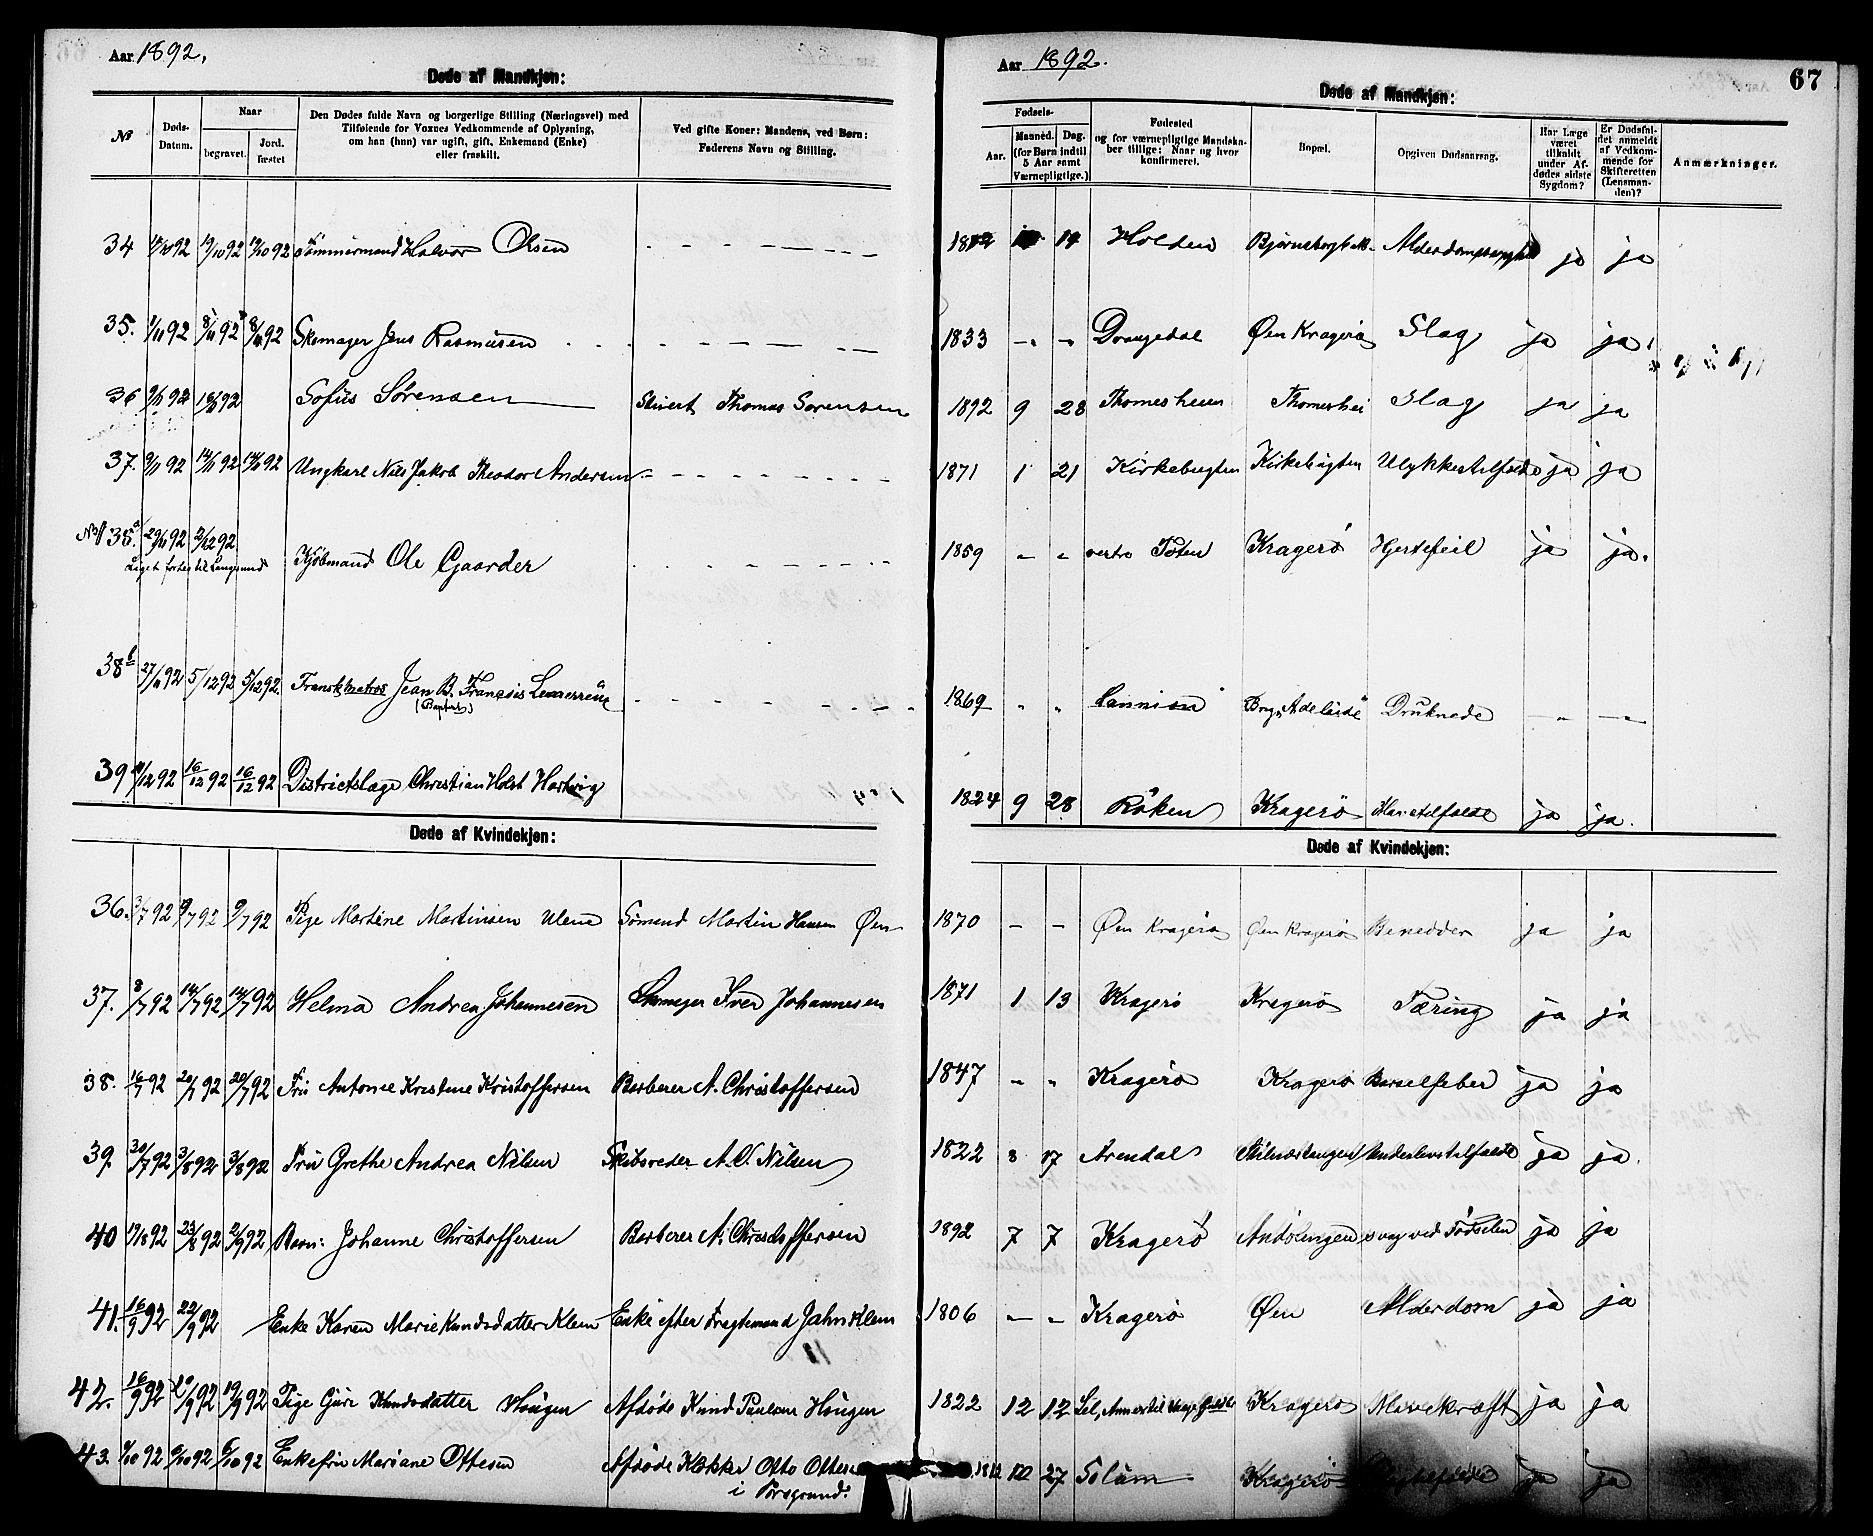 Aar 1892.
Døde af Mandkjøn:
№
Døds-Datum.
Naar
begravet.
Jord. fæstet
Den Dødes fulde Navn og borgerlige Stilling (Næringsvei) med
Tilføiende for Voxnes Vedkommende af Oplysning,
om han (hun) var ugift, gift, Enkemand (Enke)
eller fraskilt.
Ved gifte Koner: Mandens, ved Børn:
Faderens Navn og Stilling.
34 19/10 92 19/10 92 Tømmermand Halvor Olsen
35. 1/11 92 8/11 92 8/11 92 Skomager Jens Rasmusen
36 9/11 92 92 Sofus Sørensen Stuert Thomas Sorensen
37. 9/11 92 14/11 92 14/11 92 Ungkarl Nils Jakob Theodor Andersen
38.a 29/11 92 2/12 92 Kjøbmand Ole Gaarder
Liget til Langesund
38b 27/11 92 5/12 92 5/12 92. Fransk Matros Jean B. Francois
(Baptist)
39 12 92 16/12 92 16/12 92 Districtslæge Christian Holst Hartwig
Døde af Kvindekjøn:
36. 3/7 92 9/7 92 9/7 92 Pige Martine Martinsen Sømand Martin Hansen Øen
37. 8/7 92 14/7 92 14/7 92 Helma Andrea Johannesen Skomager Iver Johannesen
38. 16/7 92 20/7 92 20/7 92 Fru Antonie Kristine Kristoffersen Barberer A. Christoffersen
39. 30/7 92 3/8 92 3/8 92 Fru Grethe Andrea Nilsen Skibsreder A. O. Nilsen
40 19/8 92 23/8 92 2/9 92 Barn: Johanne Christoffersen Barberer A. Christoffersen
41. 16/9 92 22/9 92 Enke Karen Marie Knudsdatter Klem Enke efter Fragtemand Jahn Klem
42. 16/9 92 19/9 92 19/9 92 Pige Guri Knudsdatter Hougen Afdøde Knud Paulsen Hougen
43. 92 6/10 92 6/10 92 Enkefru Mariane Ottesen Afdøde Klokker Otto Ottesen
i Porsgrund.
Aar 1892.
67
Døde af Mandkjøn:
Fødsels-
Aar.
Maaned.
Dag.
(for Børn indtil
5 Aar samt
Værnepligtige.)
Fødested
og for værnepligtige Mandska-
ber tillige: Naar og hvor
konfirmeret.
Bopæl.
Opgiven Dødsaarsag.
Har Læge
været
tilkaldt
under Af-
dødes sidste
Sygdom?
Er Dødsfal-
det anmeldt
af Vedkom-
mende for
Skifteretten
(Lensman-
den)?
Anmærkninger.
19 Holden ja ja
1833 - - Drangedal Øen Kragerø Slag ja ja
1892 9 28 Thomesheien Thomeshei Slag ja ja
1871 1 21 Kirkebugten Kirkebugten Ulykkestilfælde ja ja
1859 " " vestre Toten Kragerø Hjertefeil ja ja.
1869 " " Lannion Brig „Adelaide" Druknede - " -
1824 9 28 Røken Kragerø ja ja.
Døde af Kvindekjøn:
1870 - - Øen Kragerø Øen Kragerø Benedder ja ja
1871 1 13 Kragerø Kragerø Tæring ja ja
1847 " " Kragerø Kragerø Barselfeber ja ja
1822 8 17 Arendal Underlivstilfælde ja ja.
1892 7 7 Kragerø Andølingen svag ved Fødselen ja ja
1806 - - Kragerø Øen Alderdom ja ja
1822 12 12 Kragerø Mavekræft ja ja
27 Solum Kragerø ja ja